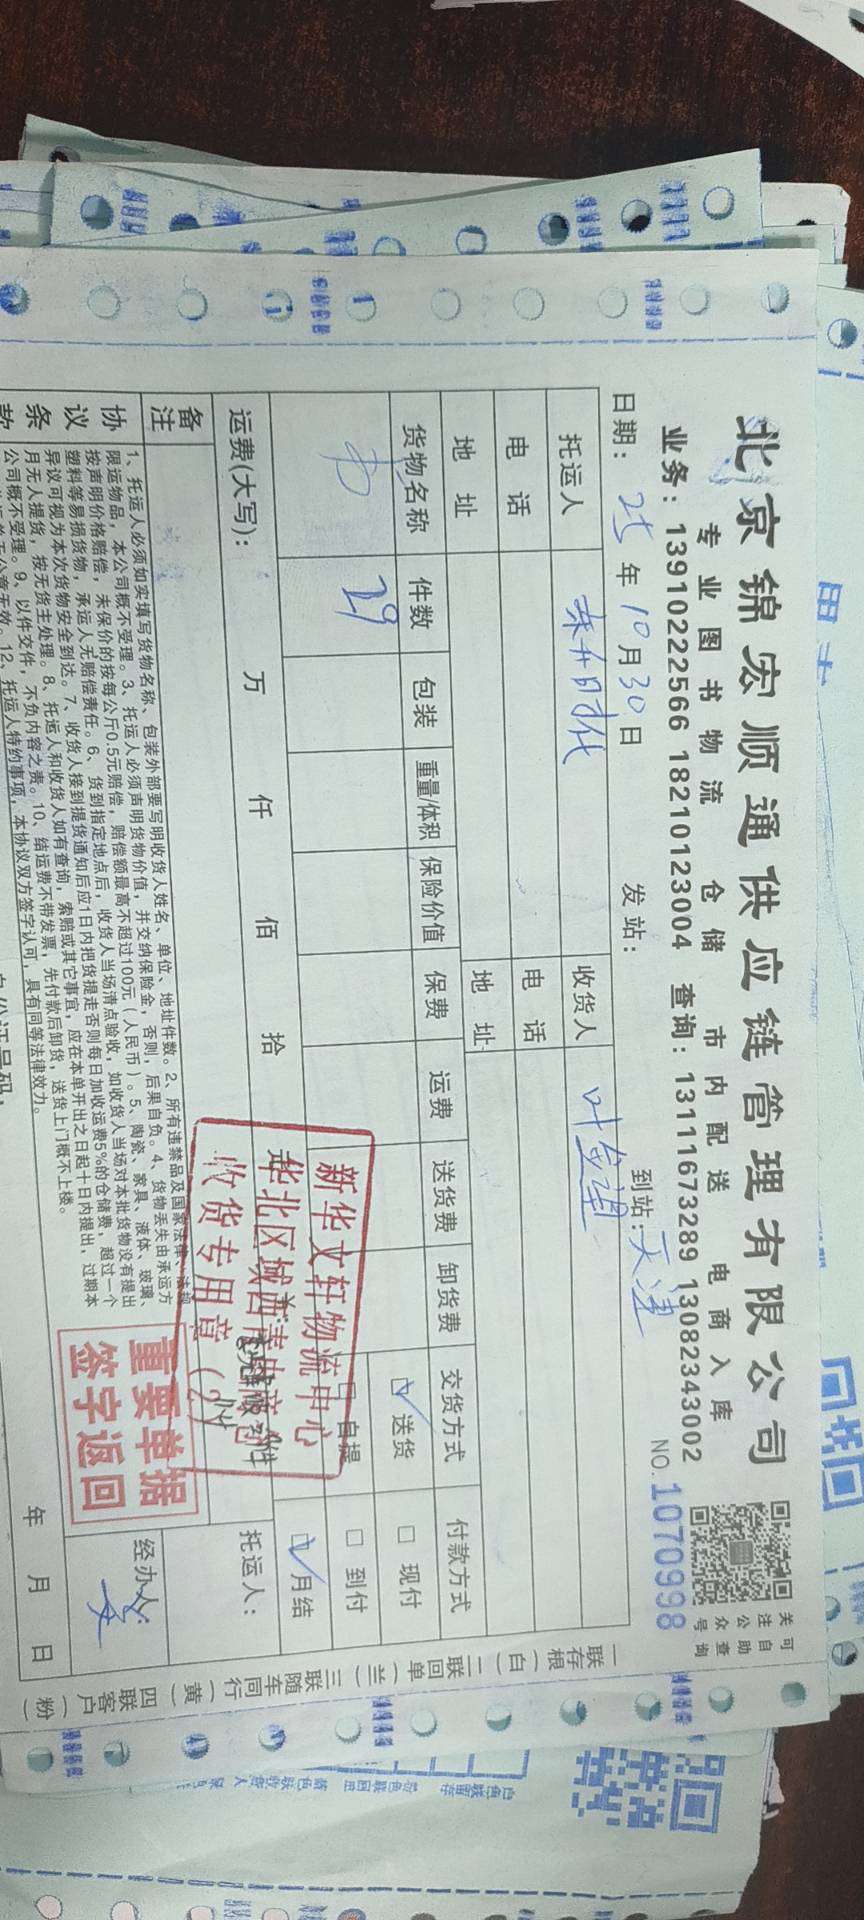 北京锦宏顺通供应链管理有限公司
专业图书物流 仓储 市内配送 电商入库
业务：13910222566 18210123004 查询：13111673289 13082343002
关注公众号
可自助查询
日期：25年10月30日 发站： 到站：天津 NO.1070998
托运人 收货人
电话 电话
地址 地址
货物名称 件数 包装 重量/体积 保险价值 保费 运费 送货费 卸货费 交货方式 付款方式
29 送货 现付
自提 到付
月结
运费(大写)： 万 仟 佰 拾 托运人：
新华文轩物流中心
华北区域西青
收货专用章（2）
备注
重要单据
签字返回
经办人：
协议条款
1、托运人必须如实填写货物名称、包装外部要写明收货人姓名、单位、地址件数。2、所有违禁品及国家法律、法规
限运物品，本公司概不受理。3、托运人必须声明货物价值，并交纳保险金，否则，后果自负。4、货物丢失由承运方
按声明价格赔偿，未保价的按每公斤0.5元赔偿，赔偿额最高不超过100元（人民币）。5、陶瓷、家具、液体、玻璃、
塑料等易损货物，承运人无赔偿责任。6、货到指定地点后，收货人当场清点验收，如收货人当场对本批货物没有提出
异议可视为本次货物安全到达。7、收货人接到提货通知后应1日内把货提走否则每日加收运费5%的仓储费，超过一个
月无人提货，按无货主处理。8、托运人和收货人如有查询，索赔或其它事宜，应在本单开出之日起十日内提出，过期本
公司概不受理。9、以件交件，不负内容之责。10、结运费不带发票，先付款后卸货，送货上门概不上楼。
12、托运人特约事项，本协议双方签字认可，具有同等法律效力。
年 月 日
身份证号码：
一联存根（白） 二联回单（兰） 三联随车同行（黄） 四联客户（粉）